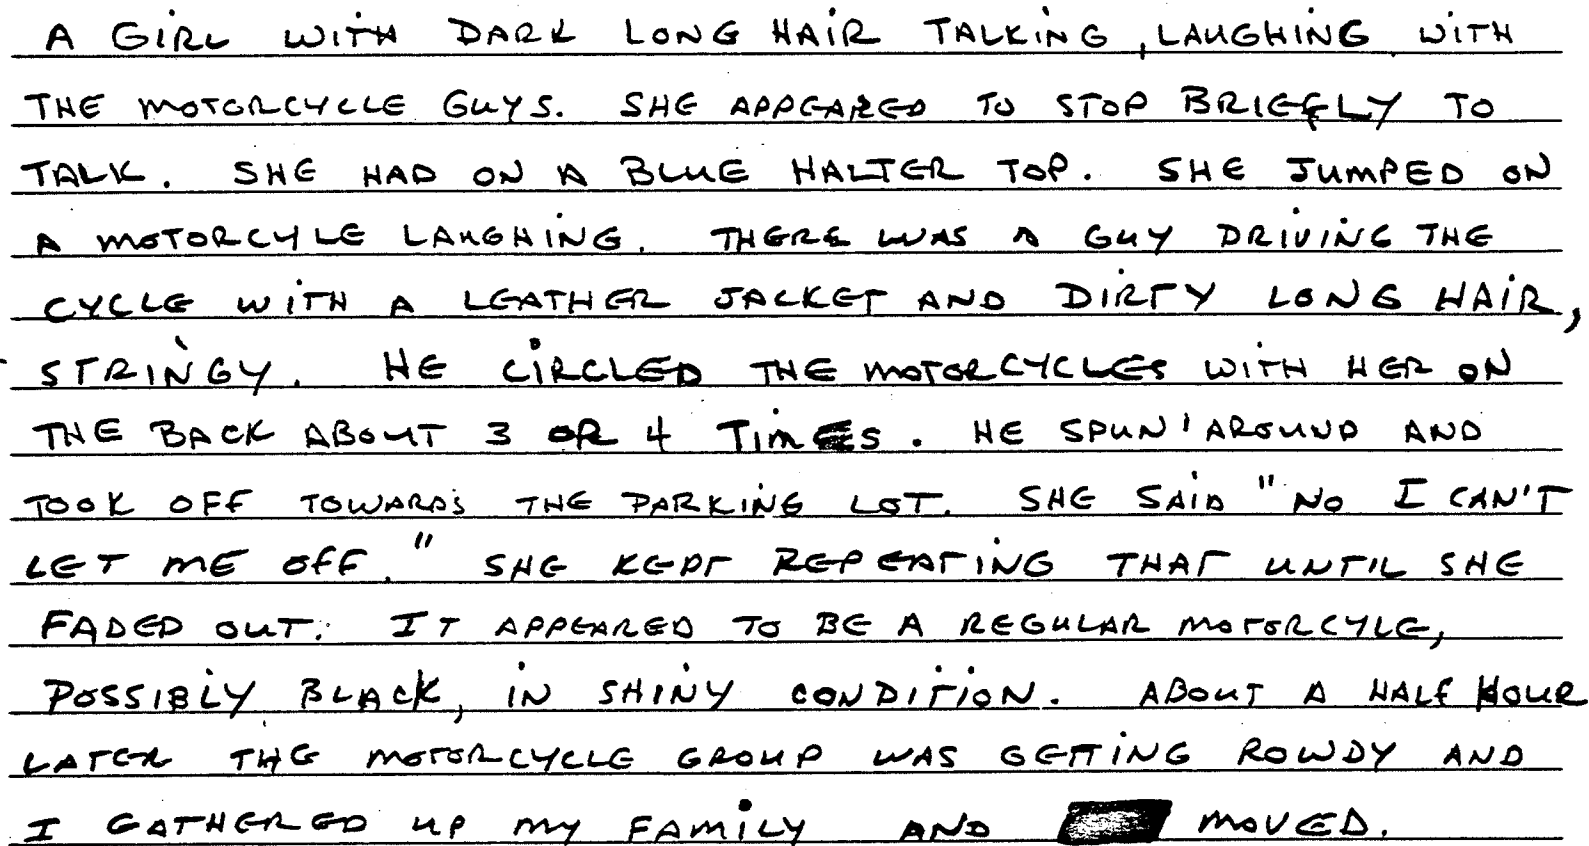 A GIRL WITH DARK LONG HAIR TALKING, LAUGHING WITH
THE MOTORCYCLE GUYS. SHE APPEARED TO STOP BRIEFLY TO
TALK. SHE HAD ON A BLUE HALTER TOP. SHE JUMPED ON
A MOTORCYLE LAUGHING. THERE WAS A GUY DRIVING THE
CYCLE WITH A LEATHER JACKET AND DIRTY LONG HAIR,
STRINGY. HE CIRCLED THE MOTORCYCLES WITH HER ON
THE BACK ABOUT 3 OR 4 TIMES. HE SPUN AROUND AND
TOOK OFF TOWARDS THE PARKING LOT. SHE SAID "NO I CAN'T
LET ME OFF." SHE KEPT REPEATING THAT UNTIL SHE
FADED OUT. IT APPEARED TO BE A REGULAR MOTORCYLE,
POSSIBLY BLACK, IN SHINY CONDITION. ABOUT A HALF HOUR
LATER THE MOTORCYCLE GROUP WAS GETTING ROWDY AND
I GATHERED UP MY FAMILY AND MOVED.